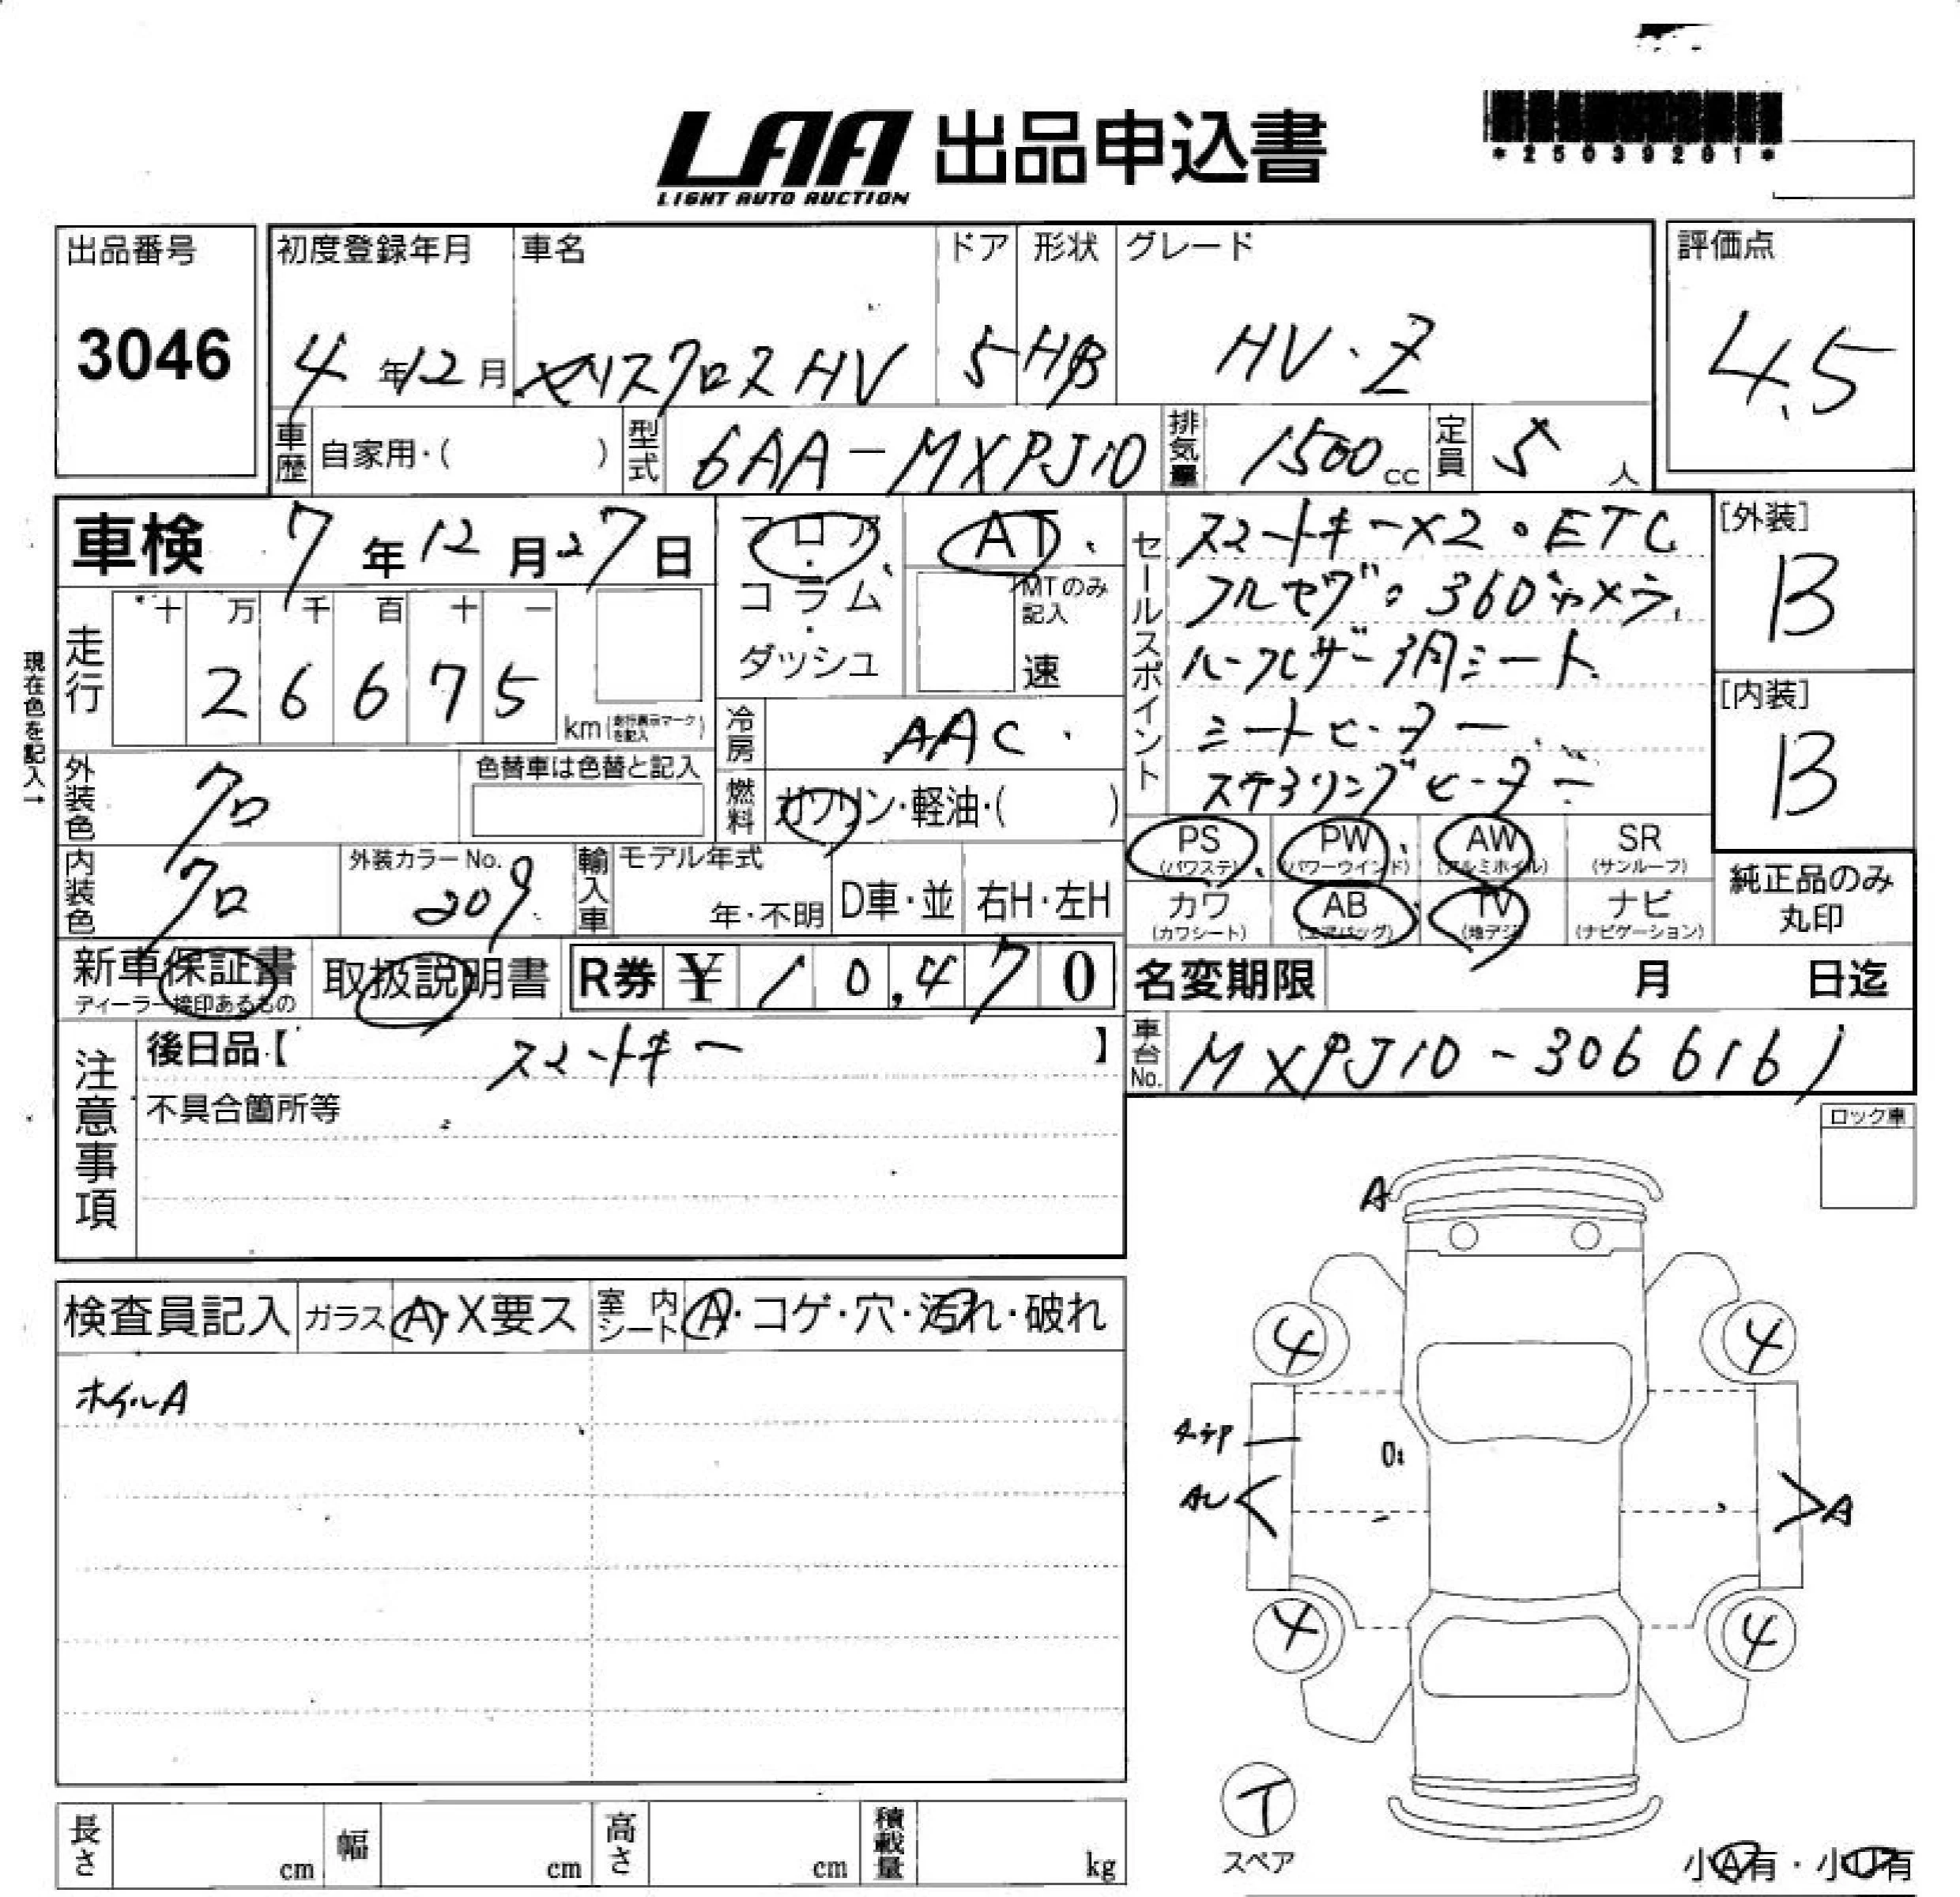 LAA 出品申込書
LIGHT AUTO AUCTION
*25039261*
出品番号
3046
初度登録年月
4年12月
車名
ヤリスクロスHV
ドア
5
形状
HB
グレード
HV・Z
評価点
4.5
車歴 自家用・( )
型式 6AA-MXPJ10
排気量 1500cc
定員 5人
車検 7年12月27日
現在色を記入→
走行
十 万 千 百 十 一
2 6 6 7 5
km(走行表示マークを記入)
フロア・コラム・ダッシュ
AT
MTのみ記入
速
冷房 AAC
燃料 ガソリン・軽油・( )
セールスポイント
スマートキー×2。ETC
フルセグ。360°カメラ
ハーフレザー調シート
シートヒーター
ステアリングヒーター
[外装]
B
[内装]
B
外装色 クロ
色替車は色替と記入
内装色 クロ
外装カラーNo. 209
輸入車 モデル年式
年・不明
D車・並
右H・左H
PS (パワステ)
PW (パワーウインド)
AW (アルミホイル)
SR (サンルーフ)
カワ (カワシート)
AB (エアバッグ)
TV (地デジ)
ナビ (ナビゲーション)
純正品のみ
丸印
新車保証書
ディーラー捺印あるもの
取扱説明書
R券 ¥ 10,470
名変期限 月 日迄
車台No. MXPJ10-3066161
注意事項
後日品【 スマートキー 】
不具合箇所等
ロック車
検査員記入
ガラス A・X要ス
室内シート A・コゲ・穴・汚れ・破れ
ホイルA
A
4
4
A
4
4
T
スペア
小A有・小U有
長さ cm
幅 cm
高さ cm
積載量 kg